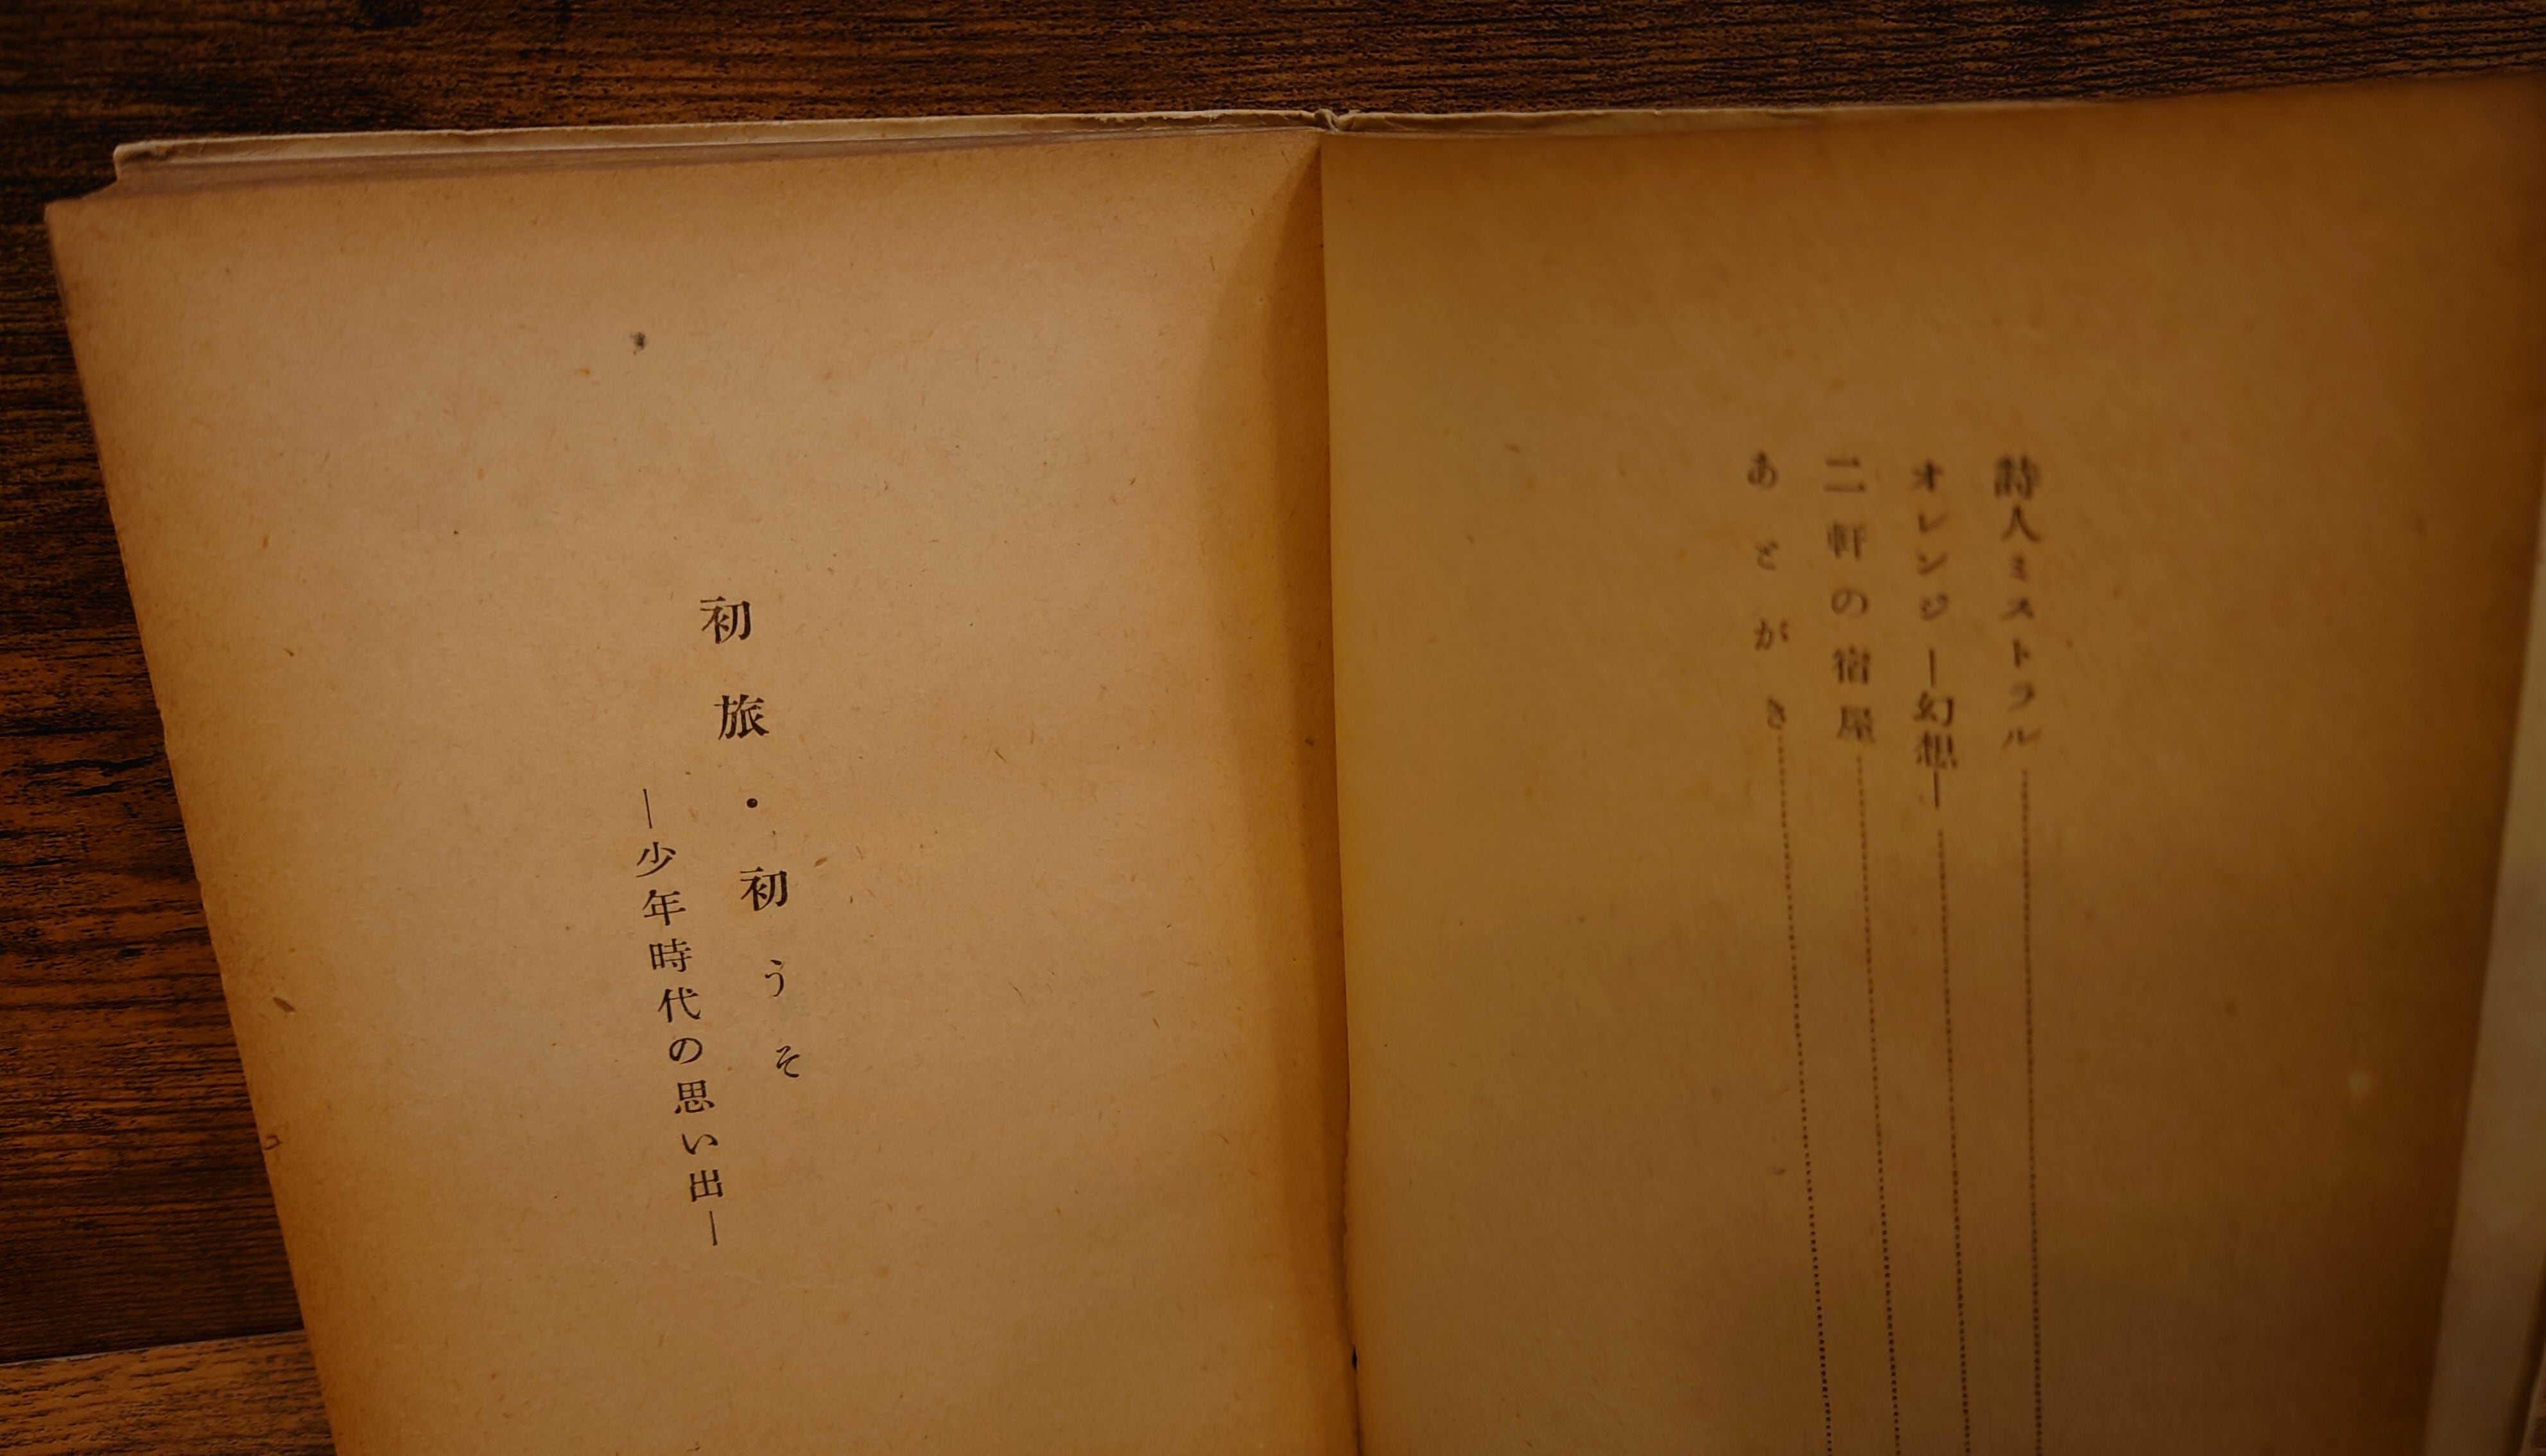 詩人ミストラル
オレンジ―幻想―
二軒の宿屋
あとがき
初旅・初うそ
―少年時代の思い出―